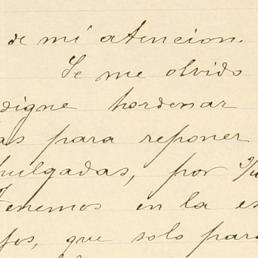 de mi atencion.
Se me olvido
digne hordenar
as para reponer
pulgadas, por
Tenemos en la es
fos, que solo para